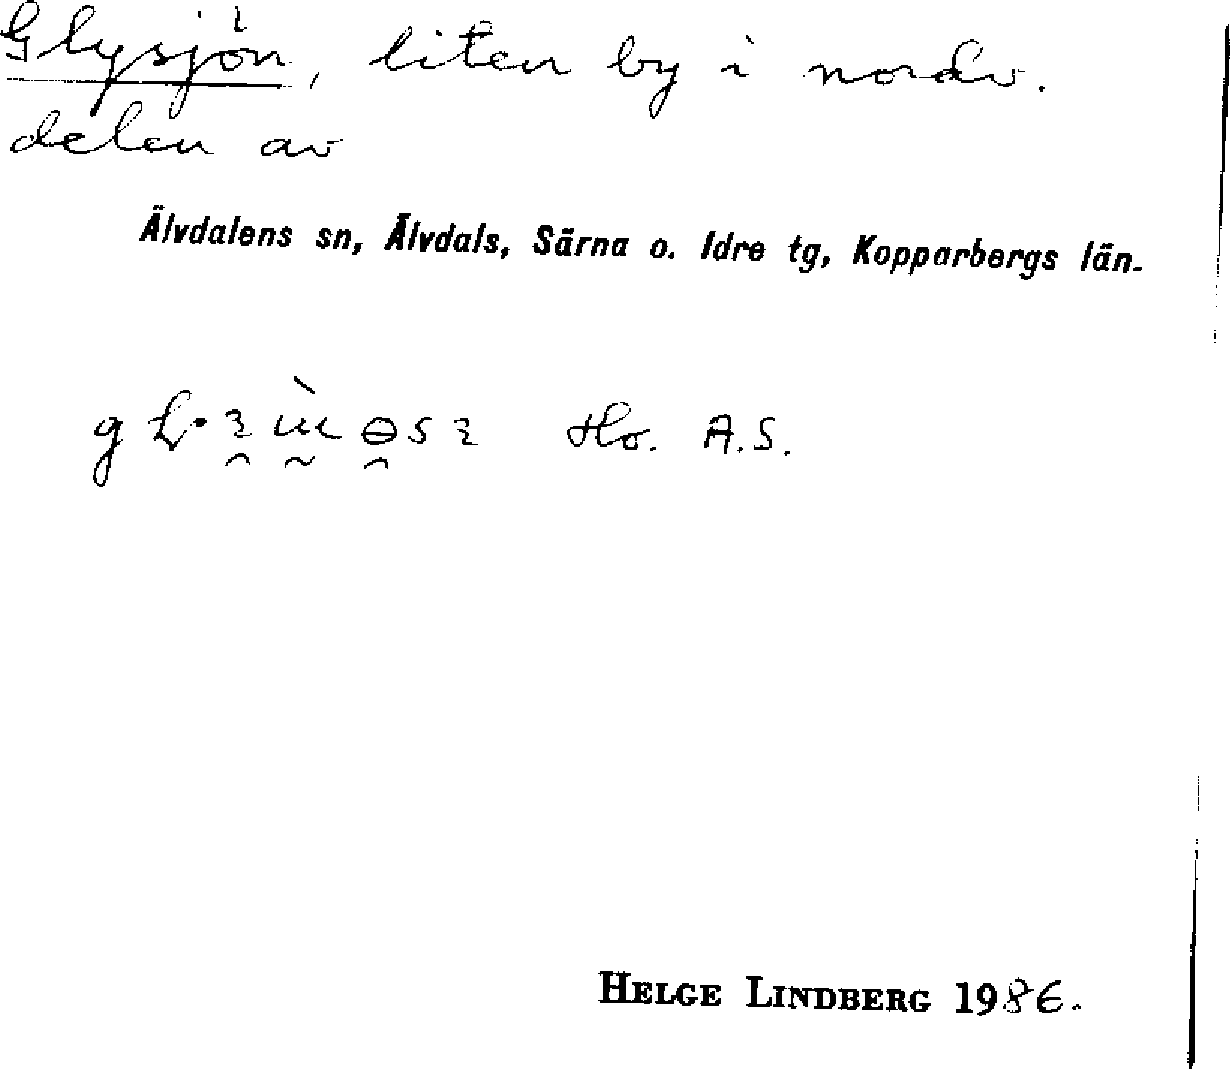 Glysjön, liten by i nordv.
delen av
Älvdalens sn, Älvdals, Särna o. Idre tg, Kopparbergs län.
A.S.
HELGE LINDBERG 1986.